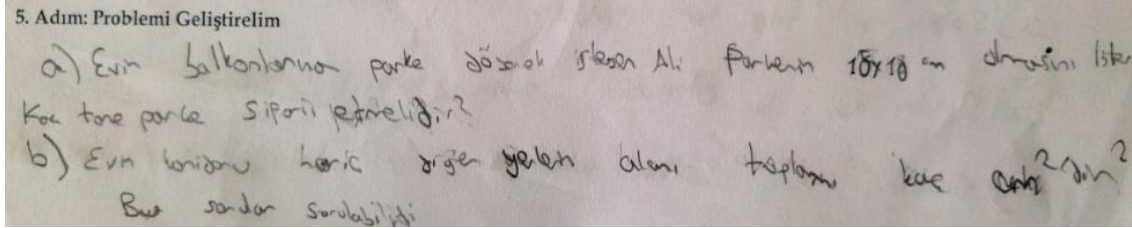 5. Adım: Problemi Geliştirelim
a) Evin balkonlarına parke döşemek isteyen Ali Parkenin 10x10 cm olmasını ister
Kaç tane parke siparis etmelidir?
b) Evin koridoru haric diğer yerlerin alanı toplamı kaç cm² dir?
Bu sorular sorulabilirdi